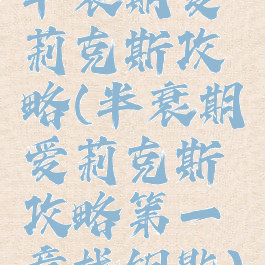 半衰期爱
莉克斯攻
略(半衰期
爱莉克斯
攻略第一
章找钥匙)